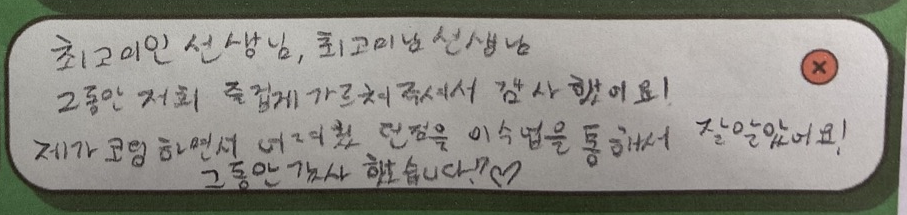 최고미인 선생님, 최고미남 선생님
그동안 저희 즐겁게 가르쳐주셔서 감사했어요!
제가 코딩하면서 어려웠던점을 이수업을 통해서 잘알았어요!
그동안감사 했습니다!?♡